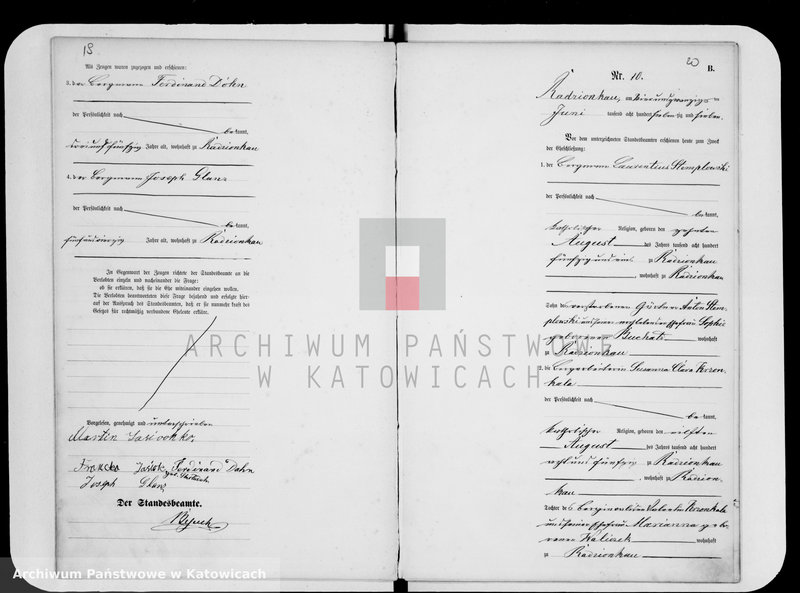 18
Als Zeugen waren zugezogen und erschienen:
3. der Bergmann Ferdinand Dohn
der Persönlichkeit nach
bekannt,
Jahre alt, wohnhaft zu Radzionkau
4. der Bergmann Joseph Glanz
der Persönlichkeit nach
bekannt,
Jahre alt, wohnhaft zu Radzionkau
In Gegenwart der Zeugen richtete der Standesbeamte an die
Verlobten einzeln und nacheinander die Frage:
ob sie erklären, daß sie die Ehe miteinander eingehen wollen.
Die Verlobten beantworteten diese Frage bejahend und erfolgte hier-
auf der Ausspruch des Standesbeamten, daß er sie nunmehr kraft des
Gesetzes für rechtmäßig verbundene Eheleute erkläre.
Vorgelesen, genehmigt und unterschrieben
Martin
Ferdinand Dohn
Joseph Glanz
Der Standesbeamte.
20
B.
Nr. 10.
Radzionkau, am vierundzwanzigsten
Juni tausend acht hundert siebenzig und sieben.
Vor dem unterzeichneten Standesbeamten erschienen heute zum Zweck
der Eheschließung:
1. der Bergmann Laurentius Stemplowski
der Persönlichkeit nach
bekannt,
katholischer Religion, geboren den zehnten
August des Jahres tausend acht hundert
fünfzig und eins zu Radzionkau
, wohnhaft zu Radzionkau
Sohn des verstorbenen Anton Stem-
plowski und seiner Ehefrau Sophie
geborenen wohnhaft
zu Radzionkau
2. die Bergarbeiterin Susanna Clara
der Persönlichkeit nach
bekannt,
katholischer Religion, geboren den elften
August des Jahres tausend acht hundert
acht und fünfzig zu Radzionkau
, wohnhaft zu Radzion-
kau
Tochter des Valentin
und seiner Ehefrau Marianna gebo-
renen wohnhaft
zu Radzionkau
ARCHIWUM PAŃSTWOWE
W KATOWICACH
Archiwum Państwowe w Katowicach